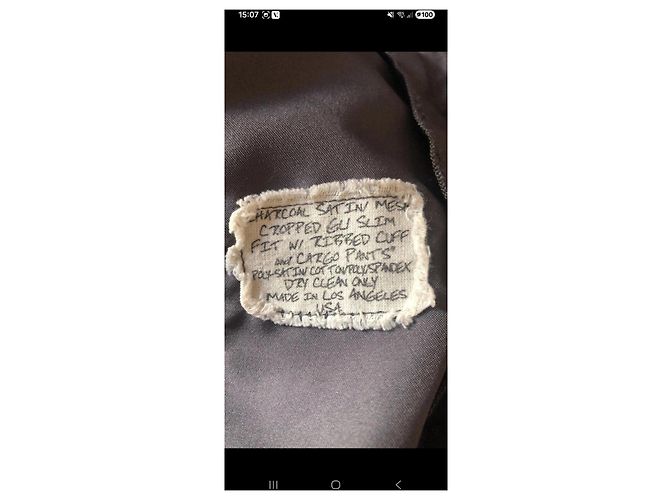 15:07
100
CHARCOAL SATIN/ MESH
CROPPED GU SLIM
FIT W/ RIBBED CUFF
AND CARGO PANTS"
POLY-SATIN/COTTON/POLY/SPANDEX
DRY CLEAN ONLY
MADE IN LOS ANGELES
USA